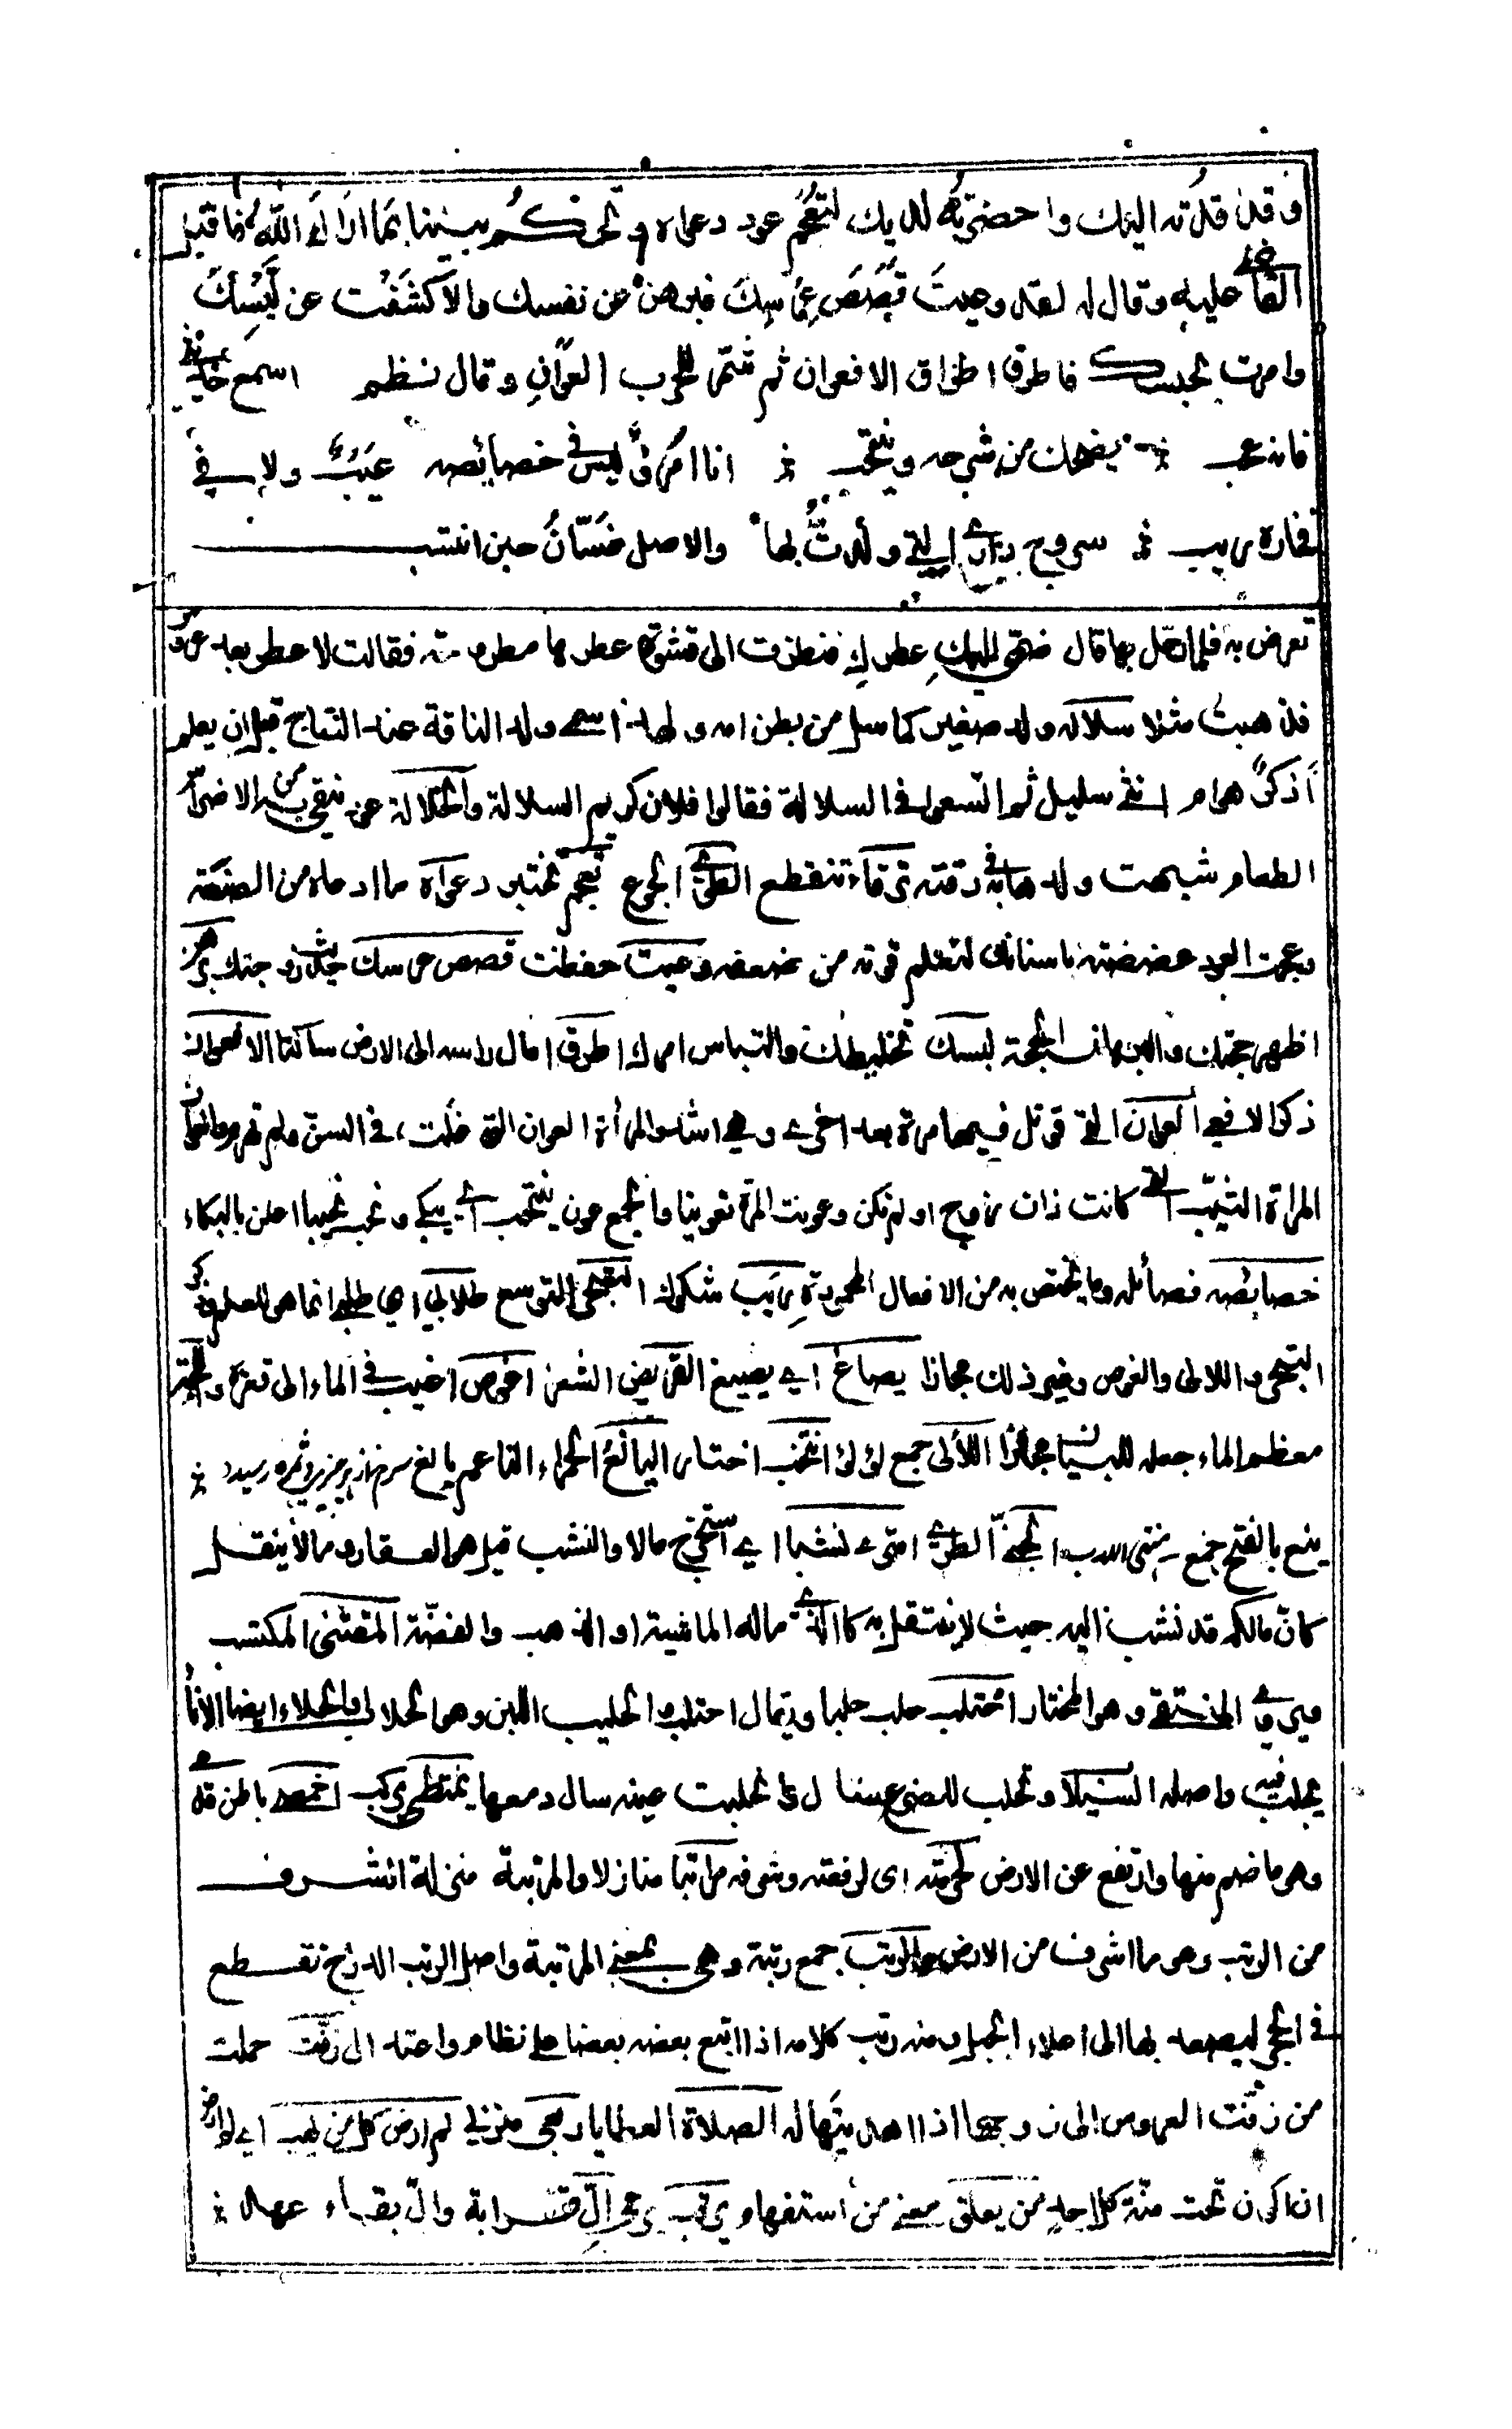 وقد قدته اليك واحضرته لديك لتعجم عود دعواه وتحكم بيننا بما اراك الله فاقبل
القاضي عليه وقال له لقد وعيت قصص عرسك فبرهن عن نفسك والا كشفت عن لبسك
وامرت بحبسك فاطرق اطراق الافعوان ثم شمر للحرب العوان وقال نظم اسمع حديثي
فانه عجب يضحك من شرحه وينتحب انا امرؤ ليس في خصائصه عيب ولا في
فخاره ريب سروج داري التي ولدت بها والاصل غسان حين انتسب
تعرض به فلما دخل بها قال ضمي اليك عطرك فنظرت الى قشوة عطرها مطروحة فقالت لا عطر بعد عروس
فذهبت مثلا سلالة ولد صغير كما سل من بطن امه ولهذا سمي ولد الناقة عند النتاج قبل ان يعلم
أذكر هو ام انثى سليل ثم اتسعوا في السلالة فقالوا فلان كريم السلالة والخلالة
الطعام شبهت ولدها به في دقته ترقأ تنقطع الطوى الجوع تعجم تختبر دعواه ما ادعاه من الصنعة
وعجمت العود عضضته باسنانك لتعلم قوته من ضعفه وعيت حفظت قصص عرسك
اظهر حجتك والبرهان الحجة لبسك تخليطك والتباس امرك اطرق امال راسه الى الارض ساكتا الافعوان
ذكر الافعى العوان التي قوتل فيها مرة بعد اخرى وهي اشد والمرأة العوان التي دخلت في السن ولم تهرم
المرأة الثيب التي كانت ذات زوج او لم تكن وعونت المرأة تعوينا والجمع عون ينتحب اي يبكي ونحب نحيبا اعلن بالبكاء
خصائصه فضائله وما يختص به من الافعال المحمودة ريب شكوك التبحر التوسع طلابي اي طلبي انما هو للعلم
التبحر واللالى والغوص وغير ذلك مجازا يصاغ اي يصيغ القريض الشعر اغوص اغيب في الماء الى قعره
معظم الماء جعله للبيان مجازا اللألى جمع لؤلؤ انتخب اختار اليانع الحمراء الناعم
ينع بالفتح جمع الجني الطري امترى نشبا اي استخرج مالا والنشب قيل هو العقار وما لا ينقل
كان مالكه قد نشب اليه حيث لا ينتقل به كالذي ماله الماشية او الذهب والفضة المقتنى المكتسب
ويروى المنتقى وهو المختار احتلب حلب حلبا ويقال احتلب والحليب اللبن
يحلب فيه واصله السيلان وتحلب عينه سال دمعها يمتطي يركب اخمصه باطن قدمه
وهو ما ضم منها وارتفع عن الارض لحرمته اى لرفعته وشرفه مراتبا منازلا والمرتبة منزلة اشرف
من الرتب وهو ما اشرف من الارض والرتب جمع رتبة وهي بمعنى المرتبة واصل الرتب الدرج تقطع
في الحجر ليصعد بها الى اعلاء الجبل ومنه رتب كلامه اذا اتبع بعضه بعضا على نظام واحد زفت حملت
من زفت العروس الى زوجها اذا اهديتها له الصلاة العطايا ربعى منزلي لم ارض كل من يهب
ان اكون تحت منة كل احد من يعلق معنى من استفهام يرقب الّ قرابة والّ بقاء عهد